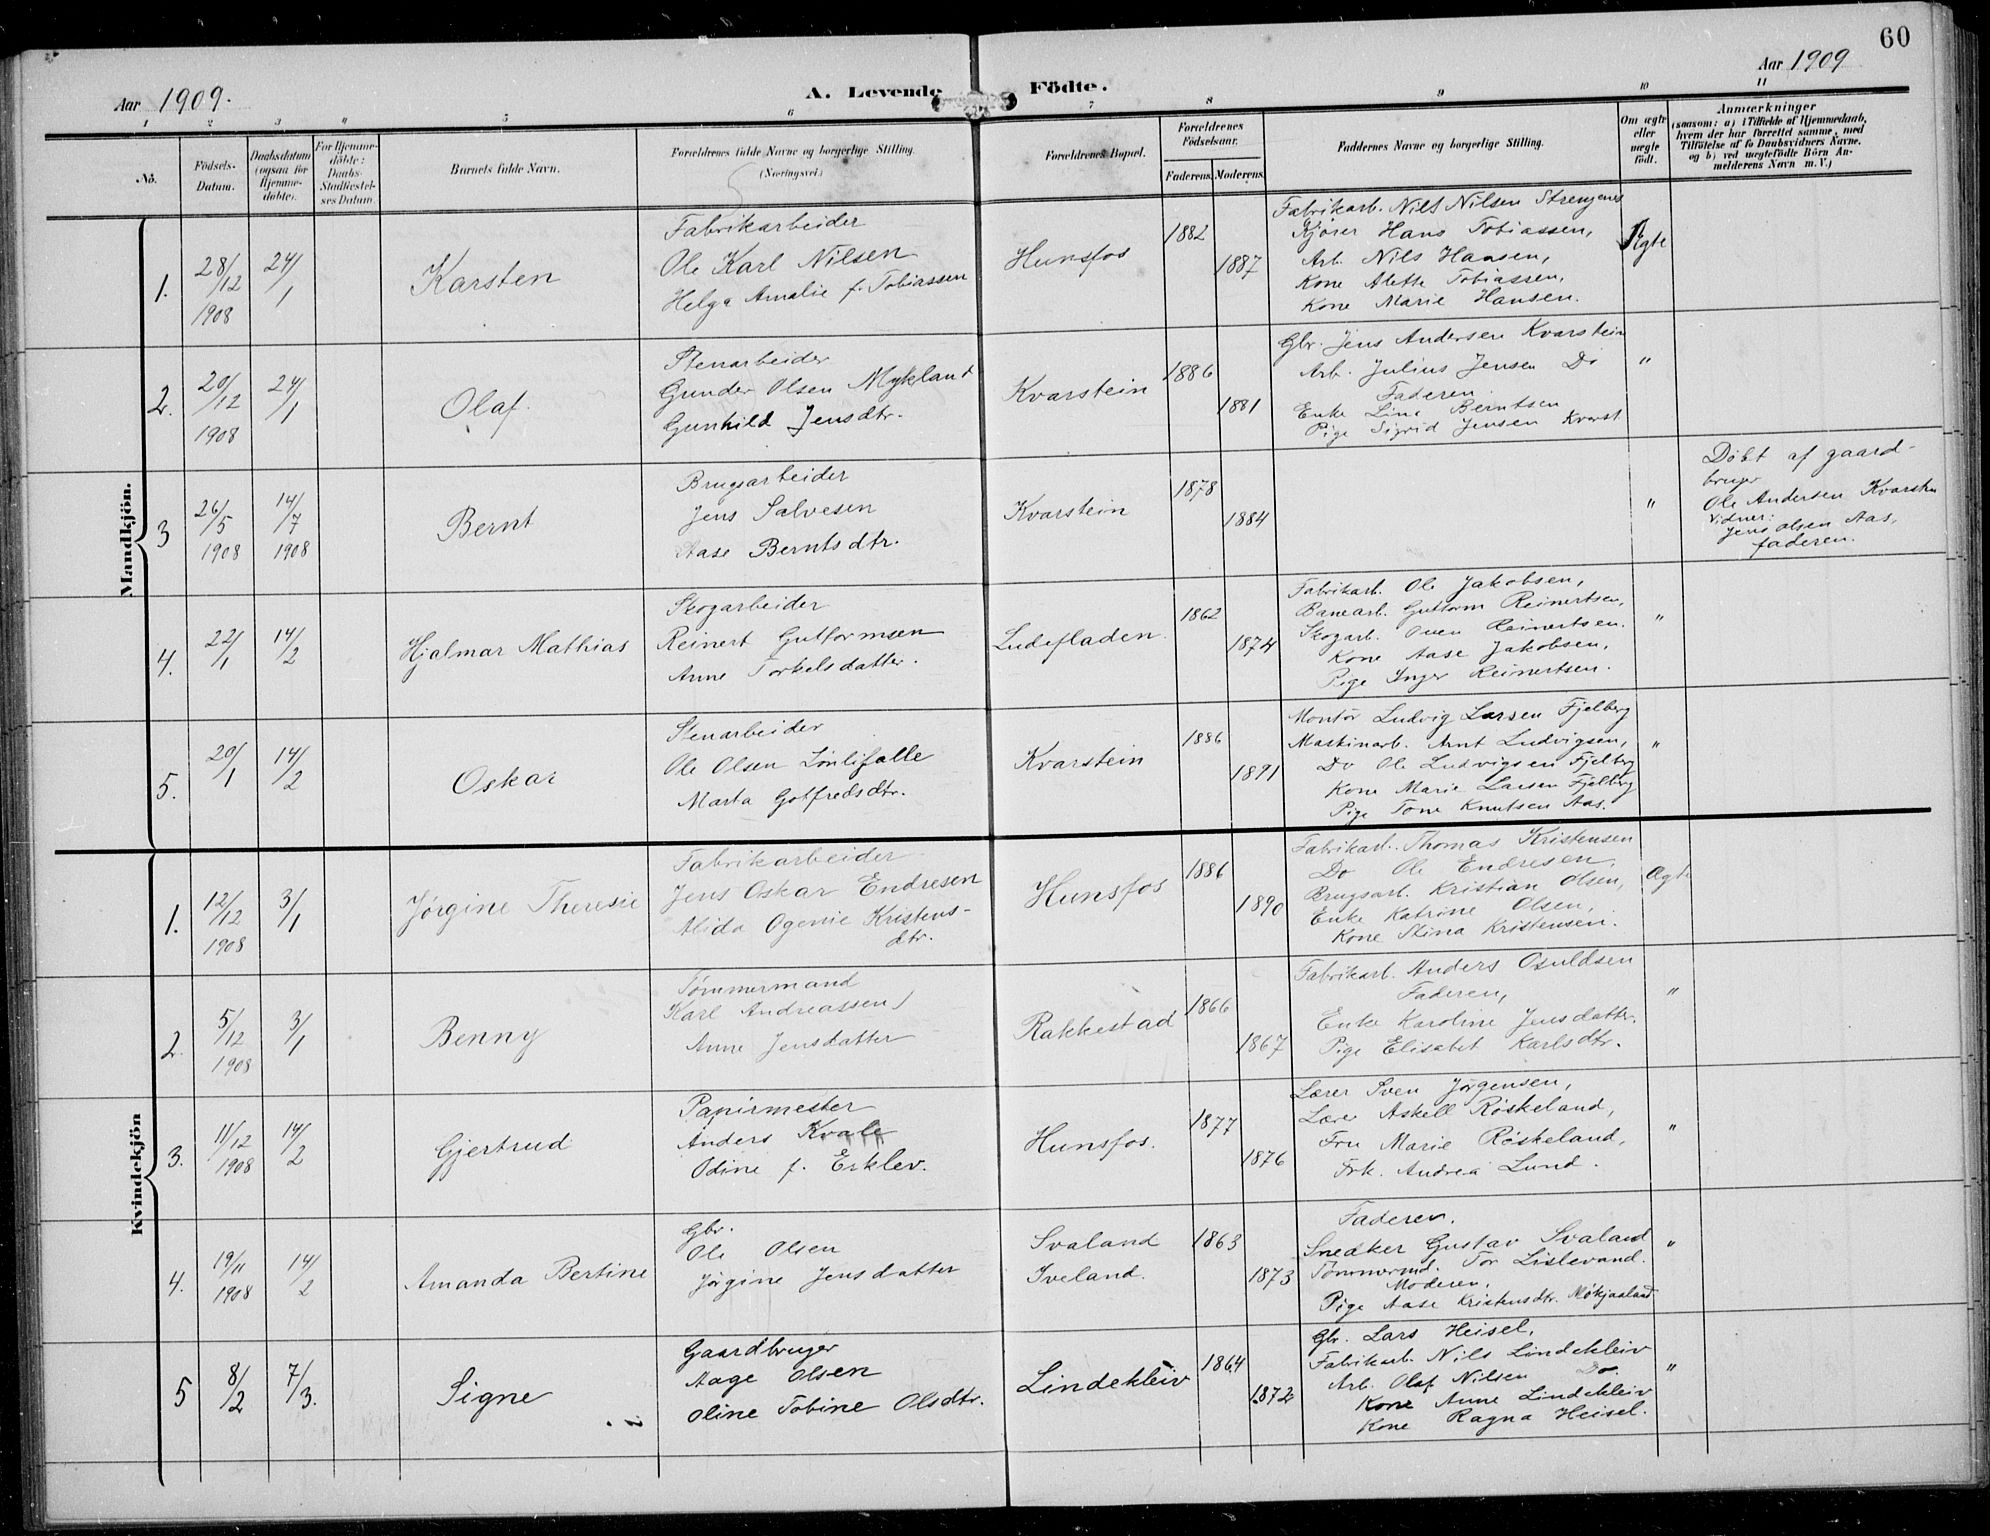 60
Aar 1909.
A. Levende Födte.
Aar 1909
1 2 3 4 5 6 7 8 9 10 11
No.
Födsels-Datum.
Daabsdatum (ogsaa for Hjemme-döbte).
For Hjemme-döbte: Daabs-Stadfæstel-ses Datum.
Barnets fulde Navn.
Forældrenes fulde Navne og borgerlige Stilling. (Næringsvei.)
Forældrenes Bopæl.
Forældrenes Födselsaar.
Faderens. Moderens.
Faddernes Navne og borgerlige Stilling.
Om ægte eller uægte födt.
Anmærkninger
(saasom: a) i Tilfælde af Hjemmedaab,
hvem der har forrettet samme, med
Tilföielse af to Daabsvidners Navne,
og b) ved uægtefödte Börn An-
melderens Navn m. V.)
Mandkjön.
1.
28/12 1908
24/1
Karsten
Fabrikarbeider
Ole Karl Nilsen
Helga Amalie f. Tobiassen
Hunsfos
1882
1887
Fabrikarb. Nils Nilsen Strengenes
Kjører Hans Tobiassen,
Arb. Nils Hansen,
Kone Alette Tobiassen,
Kone Marie Hansen.
Ægte
2.
20/12 1908
24/1
Olaf.
Stenarbeider
Gunder Olsen Mykland
Gunhild Jensdtr.
Kvarstein
1886
1881
Gbr. Jens Andersen Kvarstein
Arb. Julius Jensen Do
Faderen
Enke Line Berntsen
Pige Sigrid Jensen Kvarst
"
3
26/5 1908
14/7 1908
Bernt
Brugsarbeider
Jens Salvesen
Aase Berntsdtr.
Kvarstein
1878
1884
"
Døbt af gaard-
bruger
Ole Andersen Kvarstein
Vidner:
Jens Olsen Aas,
faderen.
4.
22/1
14/2
Hjalmar Mathias
Skogarbeider
Reinert Guttormsen
Anne Torkelsdatter.
Ludefladen
1862
1874
Fabrikarb. Ole Jakobsen,
Banearb. Guttorm Reinertsen,
Skogarb. Oven Reinertsen.
Kone Aase Jakobsen,
Pige Inger Reinertsen.
"
5.
20/1
14/2
Oskar
Stenarbeider
Ole Olsen Lönlifalle
Marta Gotfredsdtr.
Kvarstein
1886
1891
Montør Ludvig Larsen Fjelberg
Maskinarb. Arnt Ludvigsen,
Do Ole Ludvigsen Fjelberg
Kone Marie Larsen Fjelberg
Pige Tone Knutsen Aas.
"
Kvindekjön
1.
12/12 1908
3/1
Jørgine Theresie
Fabrikarbeider
Jens Oskar Endresen
Alida Ogenie Kristens-
dtr.
Hunsfos
1886
1890
Fabrikarb. Thomas Kristensen
Do Ole Endresen,
Brugsarb. Kristian Olsen,
Enke Katrine Olsen,
Kone Stina Kristensen.
Ægte
2.
5/12 1908
3/1
Benny
Tømmermand
Karl Andreassen
Anne Jensdatter
Rakkestad
1866
1867
Fabrikarb. Anders Osuldsen
Faderen,
Enke Karoline Jensdatter.
Pige Elisabet Karlsdtr.
"
3.
11/12 1908
14/2
Gjertrud
Papirmester
Anders Kvale
Odine f. Esklev.
Hunsfos.
1877
1876
Lærer Sven Jørgensen,
Lærer Askell Røskeland,
Fru Marie Røskeland,
Frk. Andrea Lund.
"
4.
19/11 1908
14/2
Amanda Bertine
Gbr.
Ole Olsen
Jørgine Jensdatter
Svaland
Iveland.
1863
1873
Faderen.
Snedker Gustav Svaland
Tømmermd. Tor Lislevand.
Moderen.
Pige Aase Kristensdtr. Møkjaaland
"
5
8/2
7/3.
Signe
Gaardbruger
Aage Olsen
Oline Tobine Olsdtr.
Lindekleiv
1864
1872
Gbr. Lars Heisel,
Fabrikarb. Nils Lindekleiv
Arb. Olaf Nilsen Do.
Kone Anne Lindekleiv
Kone Ragna Heisel.
"